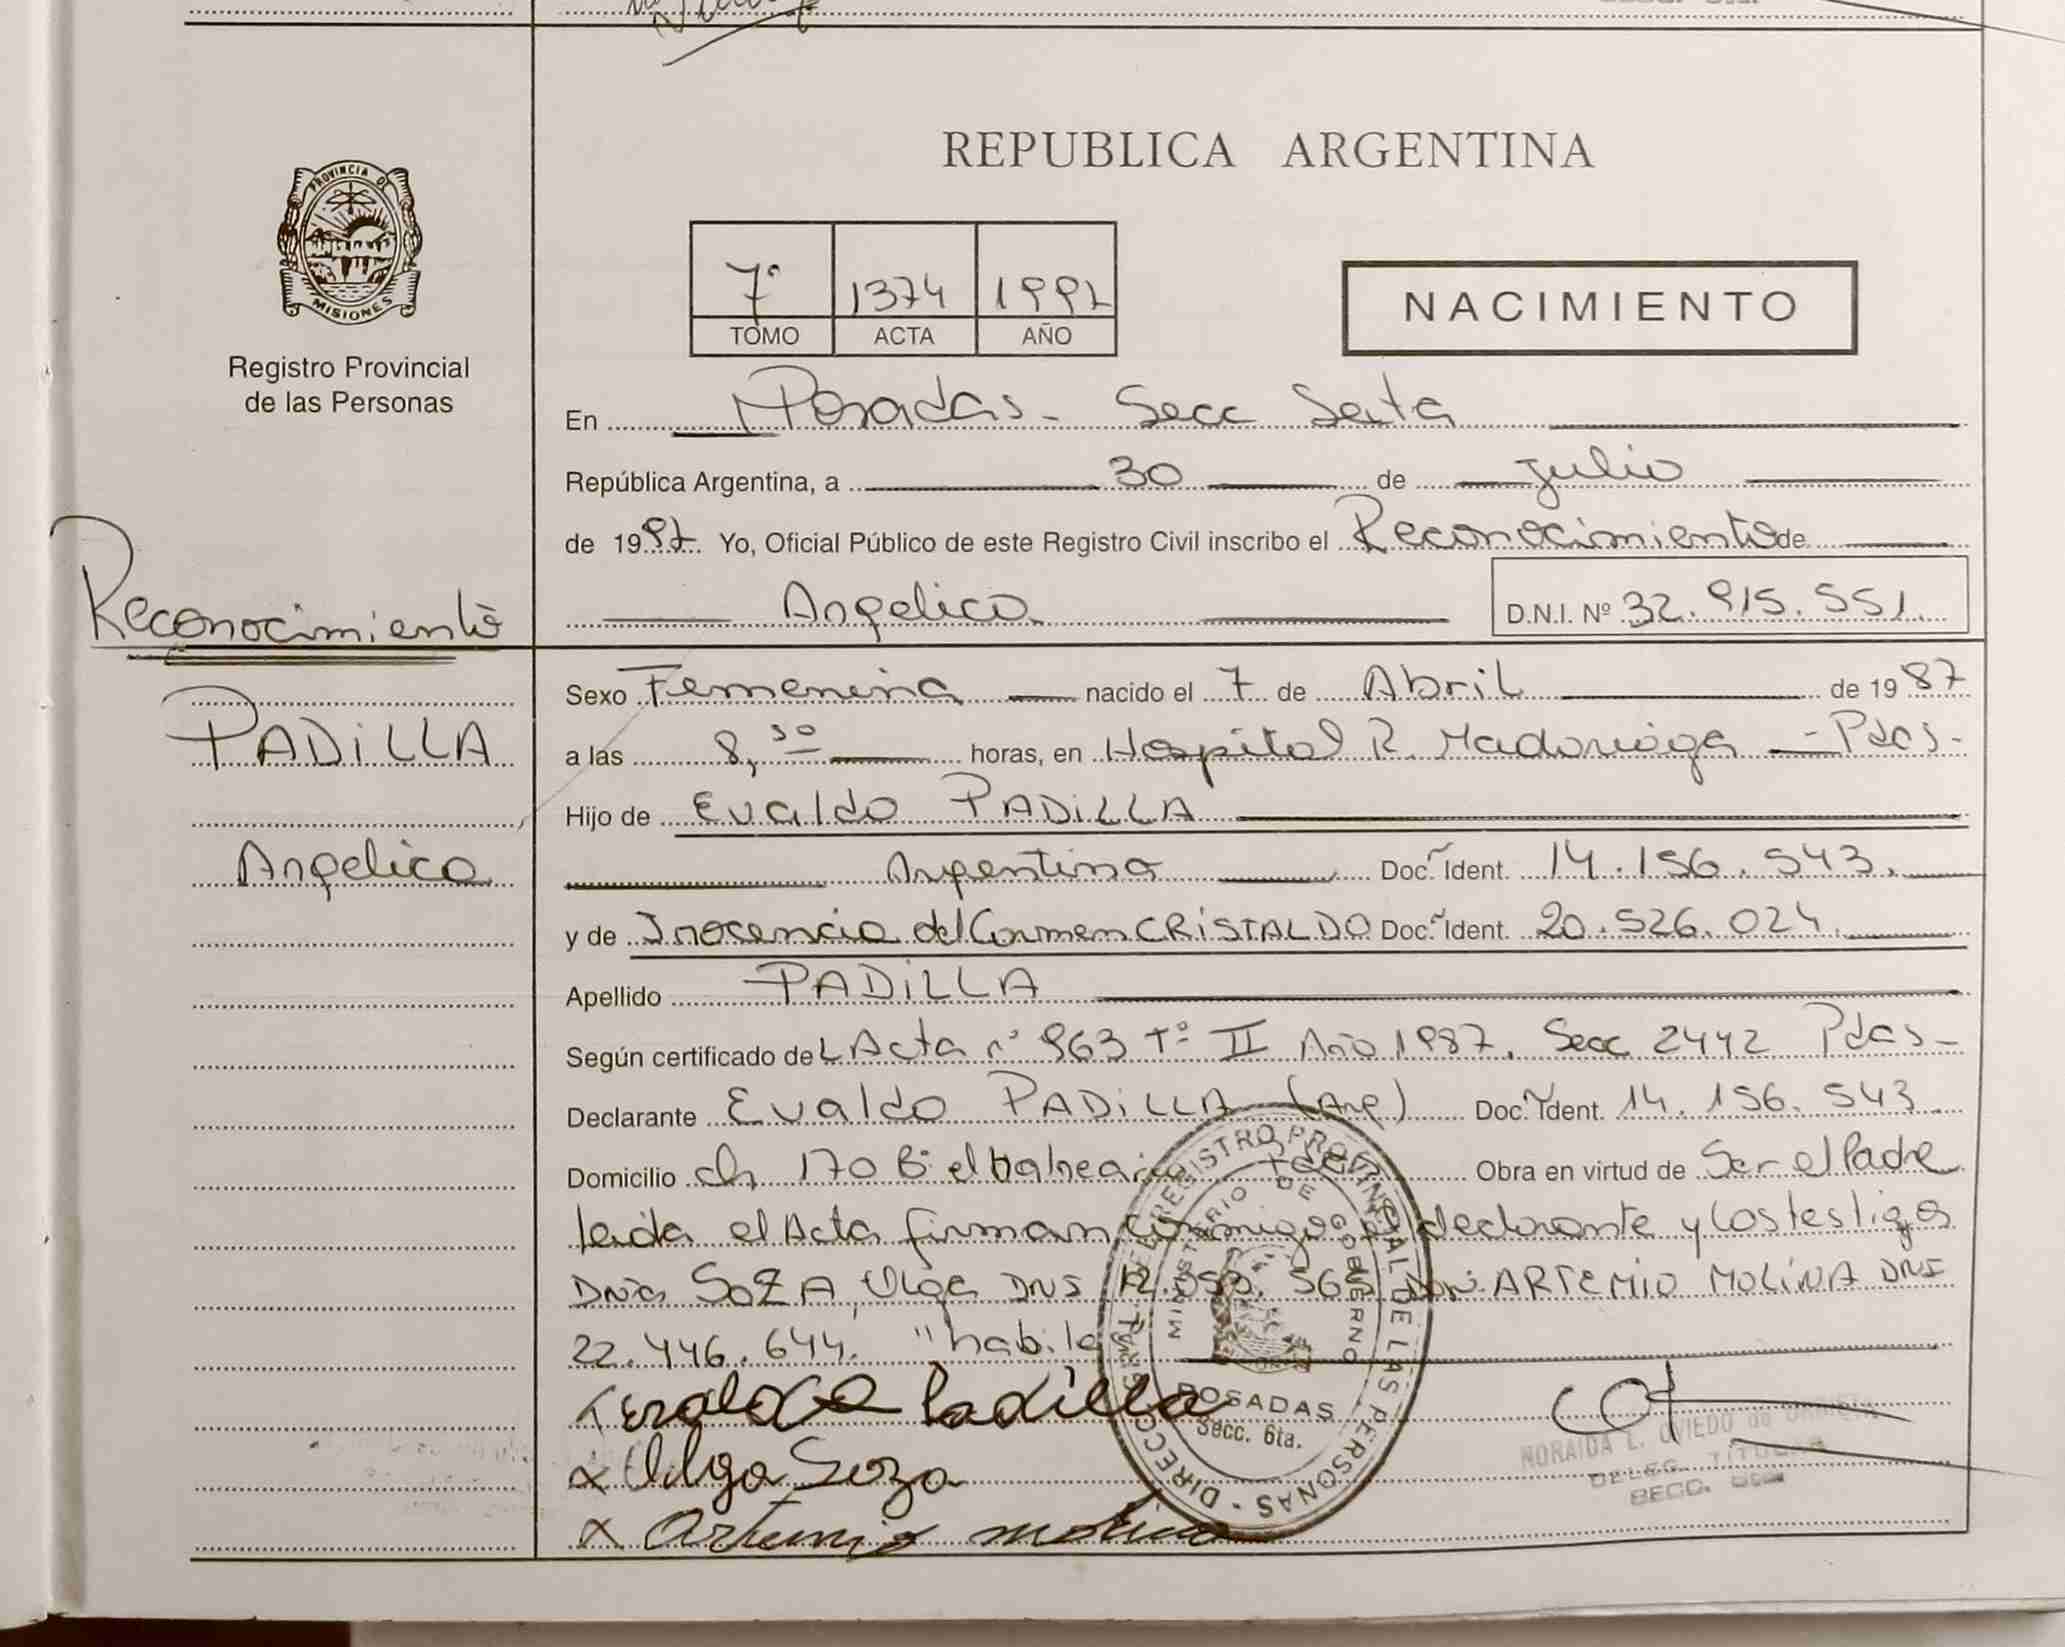 REPUBLICA ARGENTINA
PROVINCIA DE
MISIONES
Registro Provincial
de las Personas
7° 1374 1997
TOMO ACTA AÑO
NACIMIENTO
En Posadas - Secc Sexta
República Argentina, a 30 de Julio
de 1997 Yo, Oficial Público de este Registro Civil inscribo el Reconocimiento de
Angelica D.N.I. Nº 32.915.551.
Reconocimiento
PADiLLA
Angelica
Sexo Femenina nacido el 7 de Abril de 1987
a las 8,30 horas, en Hospital R. Madariaga - Pdas -
Hijo de Evaldo PADiLLA
Argentina Doc. Ident. 14.156.543.
y de Inocencia del Carmen CRiSTALDO Doc. Ident. 20.526.024.
Apellido PADiLLA
Según certificado del Acta n° 963 T° II Año 1987. Secc 2442 Pdas -
Declarante Evaldo PADiLLA (Arg) Doc. Ident. 14.156.543
Domicilio ch 170 B° el balneario Obra en virtud de Ser el Padre
leida el Acta firman conmigo el declarante y los testigos
Dña SOZA, Olga DNI 565 Don ARTEMIO MOLiNA DNI
22.446.644. "habile
Padilla
x Olga Soza
x Artemio molina
DIRECCION DEL REGISTRO PROVINCIAL DE LAS PERSONAS
MINISTERIO DE GOBIERNO
POSADAS
Secc. 6ta.
NORAIDA L. OVIEDO de
DELEG. TITULAR
SECC.